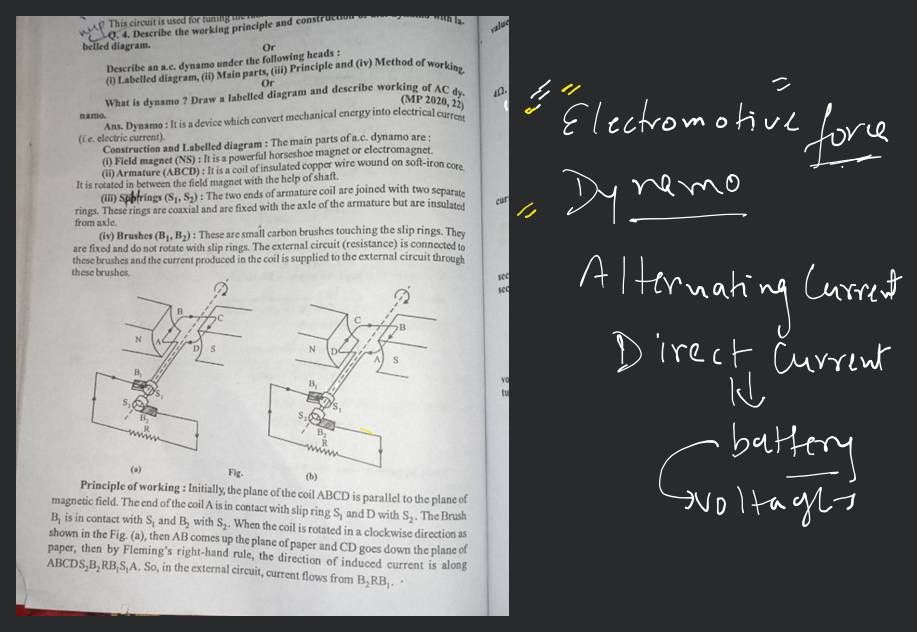 This circuit is used for tuning
Q. 4. Describe the working principle and
belled diagram.
Or
Describe an a.c. dynamo under the following heads :
(i) Labelled diagram, (ii) Main parts, (iii) Principle and (iv) Method of working.
Or
What is dynamo ? Draw a labelled diagram and describe working of AC dy-
namo.
(MP 2020, 22)
Ans. Dynamo : It is a device which convert mechanical energy into electrical current
(i.e. electric current).
Construction and Labelled diagram : The main parts of a.c. dynamo are :
(i) Field magnet (NS) : It is a powerful horseshoe magnet or electromagnet.
(ii) Armature (ABCD) : It is a coil of insulated copper wire wound on soft-iron core.
It is rotated in between the field magnet with the help of shaft.
(iii) (S₁, S₂) : The two ends of armature coil are joined with two separate
rings. These rings are coaxial and are fixed with the axle of the armature but are insulated
from axle.
(iv) Brushes (B₁, B₂) : These are small carbon brushes touching the slip rings. They
are fixed and do not rotate with slip rings. The external circuit (resistance) is connected to
these brushes and the current produced in the coil is supplied to the external circuit through
these brushes.
B C
N A D S
B₁
S₁
S₂
B₂
R
(a)
C B
N D A S
B₁
S₁
S₂
B₂
R
Fig.
(b)
Principle of working : Initially, the plane of the coil ABCD is parallel to the plane of
magnetic field. The end of the coil A is in contact with slip ring S₁ and D with S₂. The Brush
B₁ is in contact with S₁ and B₂ with S₂. When the coil is rotated in a clockwise direction as
shown in the Fig. (a), then AB comes up the plane of paper and CD goes down the plane of
paper, then by Fleming's right-hand rule, the direction of induced current is along
ABCDS₂B₂RB₁S₁A. So, in the external circuit, current flows from B₂RB₁.
value
4Ω.
cur
sec
sec
Electromotive force
Dynamo
Alternating Current
Direct Current
battery
voltage